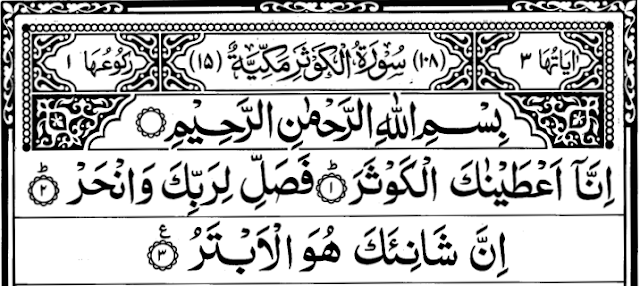 اٰیَاتُهَا ۳ (۱۰۸) سُوْرَةُ الْكَوْثَرِ مَكِّیَّةٌ (۱۵) رُكُوْعُهَا ۱
بِسْمِ اللّٰهِ الرَّحْمٰنِ الرَّحِیْمِ
اِنَّاۤ اَعْطَیْنٰكَ الْكَوْثَرَ ؕ۱ فَصَلِّ لِرَبِّكَ وَانْحَرْ ؕ۲
اِنَّ شَانِئَكَ هُوَ الْاَبْتَرُ ۳ ع